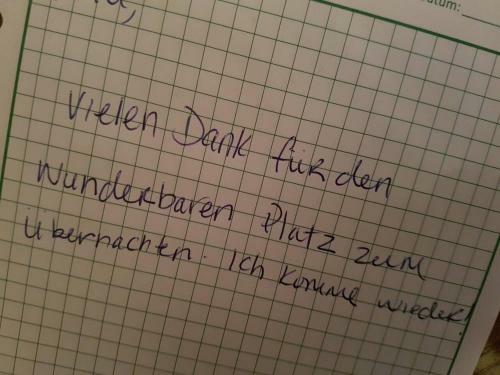 Datum:
Vielen Dank für den
wunderbaren Platz zum
übernachten. Ich komme wieder!